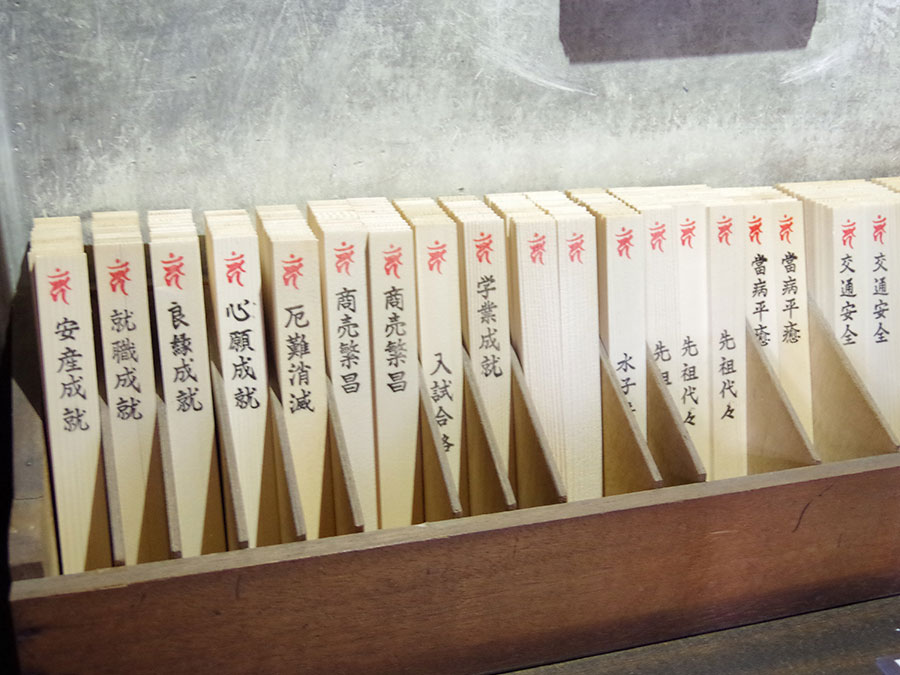 安産成就
就職成就
良縁成就
心願成就
厄難消滅
商売繁昌
商売繁昌
入試合格
学業成就
水子
先祖
先祖代々
先祖代々
當病平癒
當病平癒
交通安全
交通安全